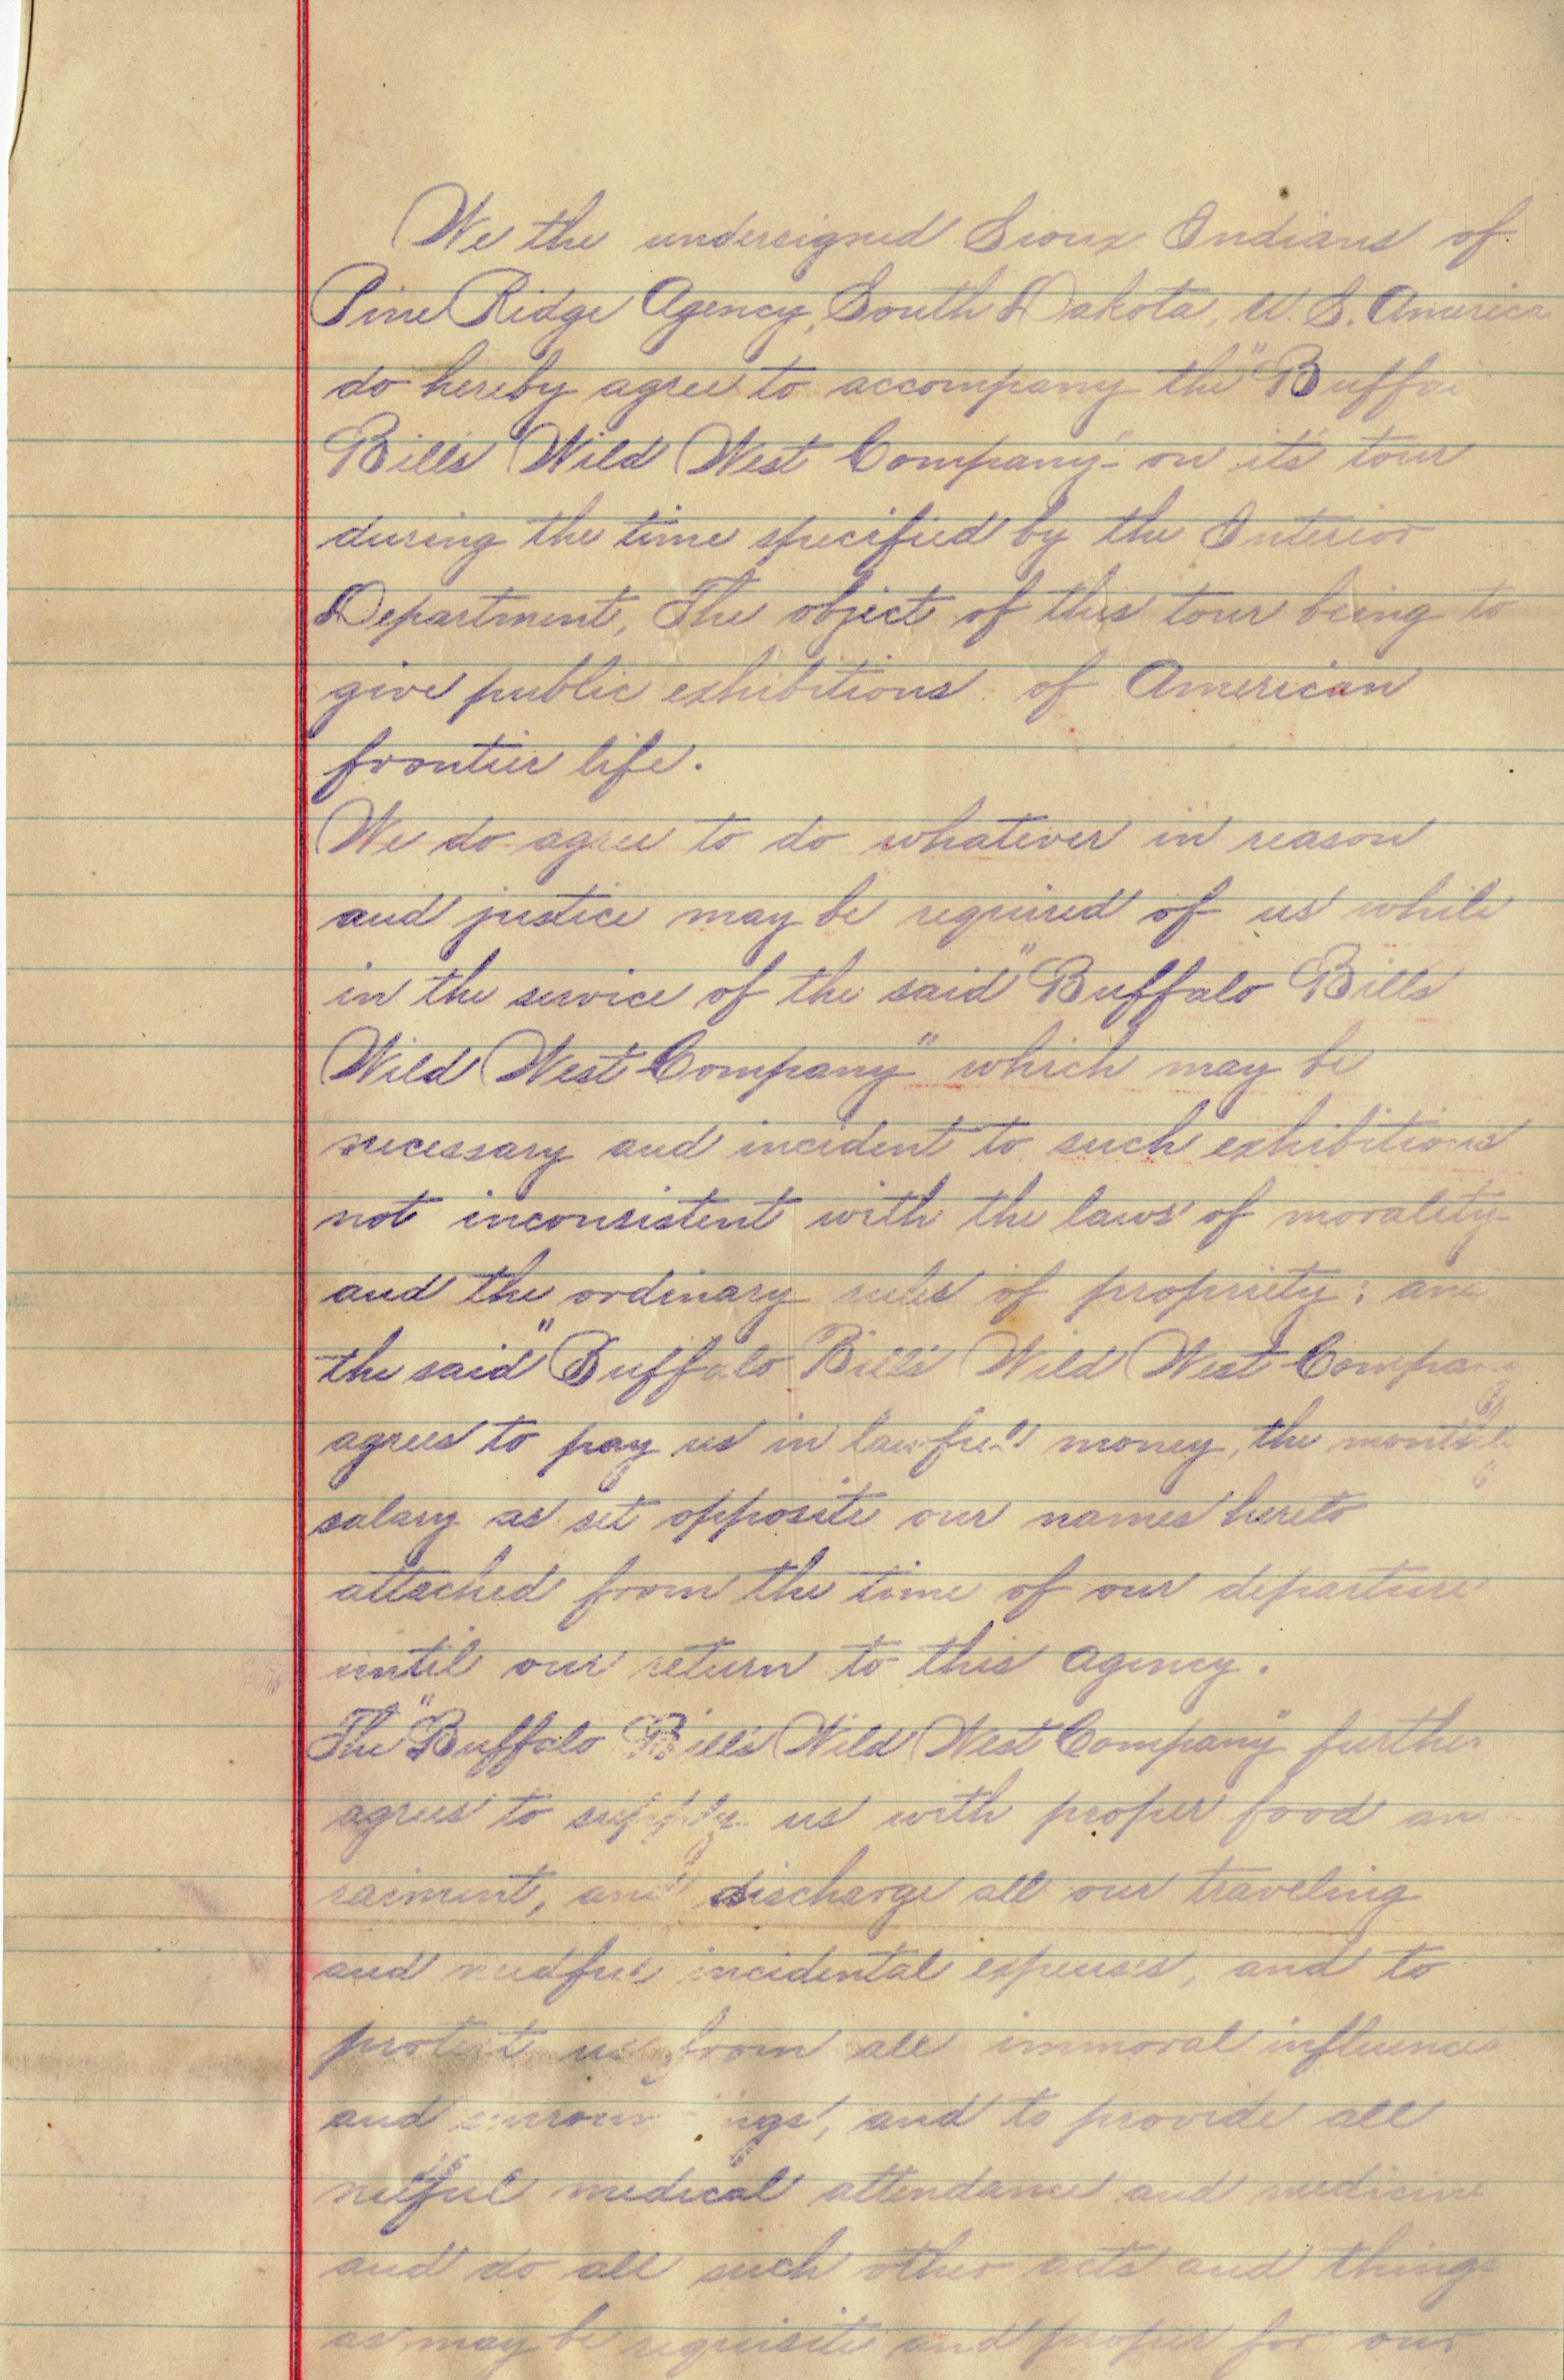 We the undersigned Sioux Indians of
Pine Ridge Agency, South Dakota, U. S. America
do hereby agree to accompany the "Buffalo
Bill's Wild West Company" on its tour
during the time specified by the Interior
Department, The object of this tour being to
give public exhibitions of American
frontier life.
We do agree to do whatever in reason
and justice may be required of us while
in the service of the said "Buffalo Bills
Wild West Company" which may be
necessary and incident to such exhibitions
not inconsistent with the laws of morality
and the ordinary rules of propriety; and
the said "Buffalo Bill's Wild West Company
agrees to pay us in lawful money, the monthly
salary as set opposite our names hereto
attached from the time of our departure
until our return to this agency.
The "Buffalo Bill's Wild West Company" further
agrees to supply us with proper food an
raiment, and discharge all our traveling
and needful incidental expenses, and to
protect us from all immoral influences
and surroundings, and to provide all
needful medical attendance and medicine
and do all such other acts and things
as may be requisite and proper for our